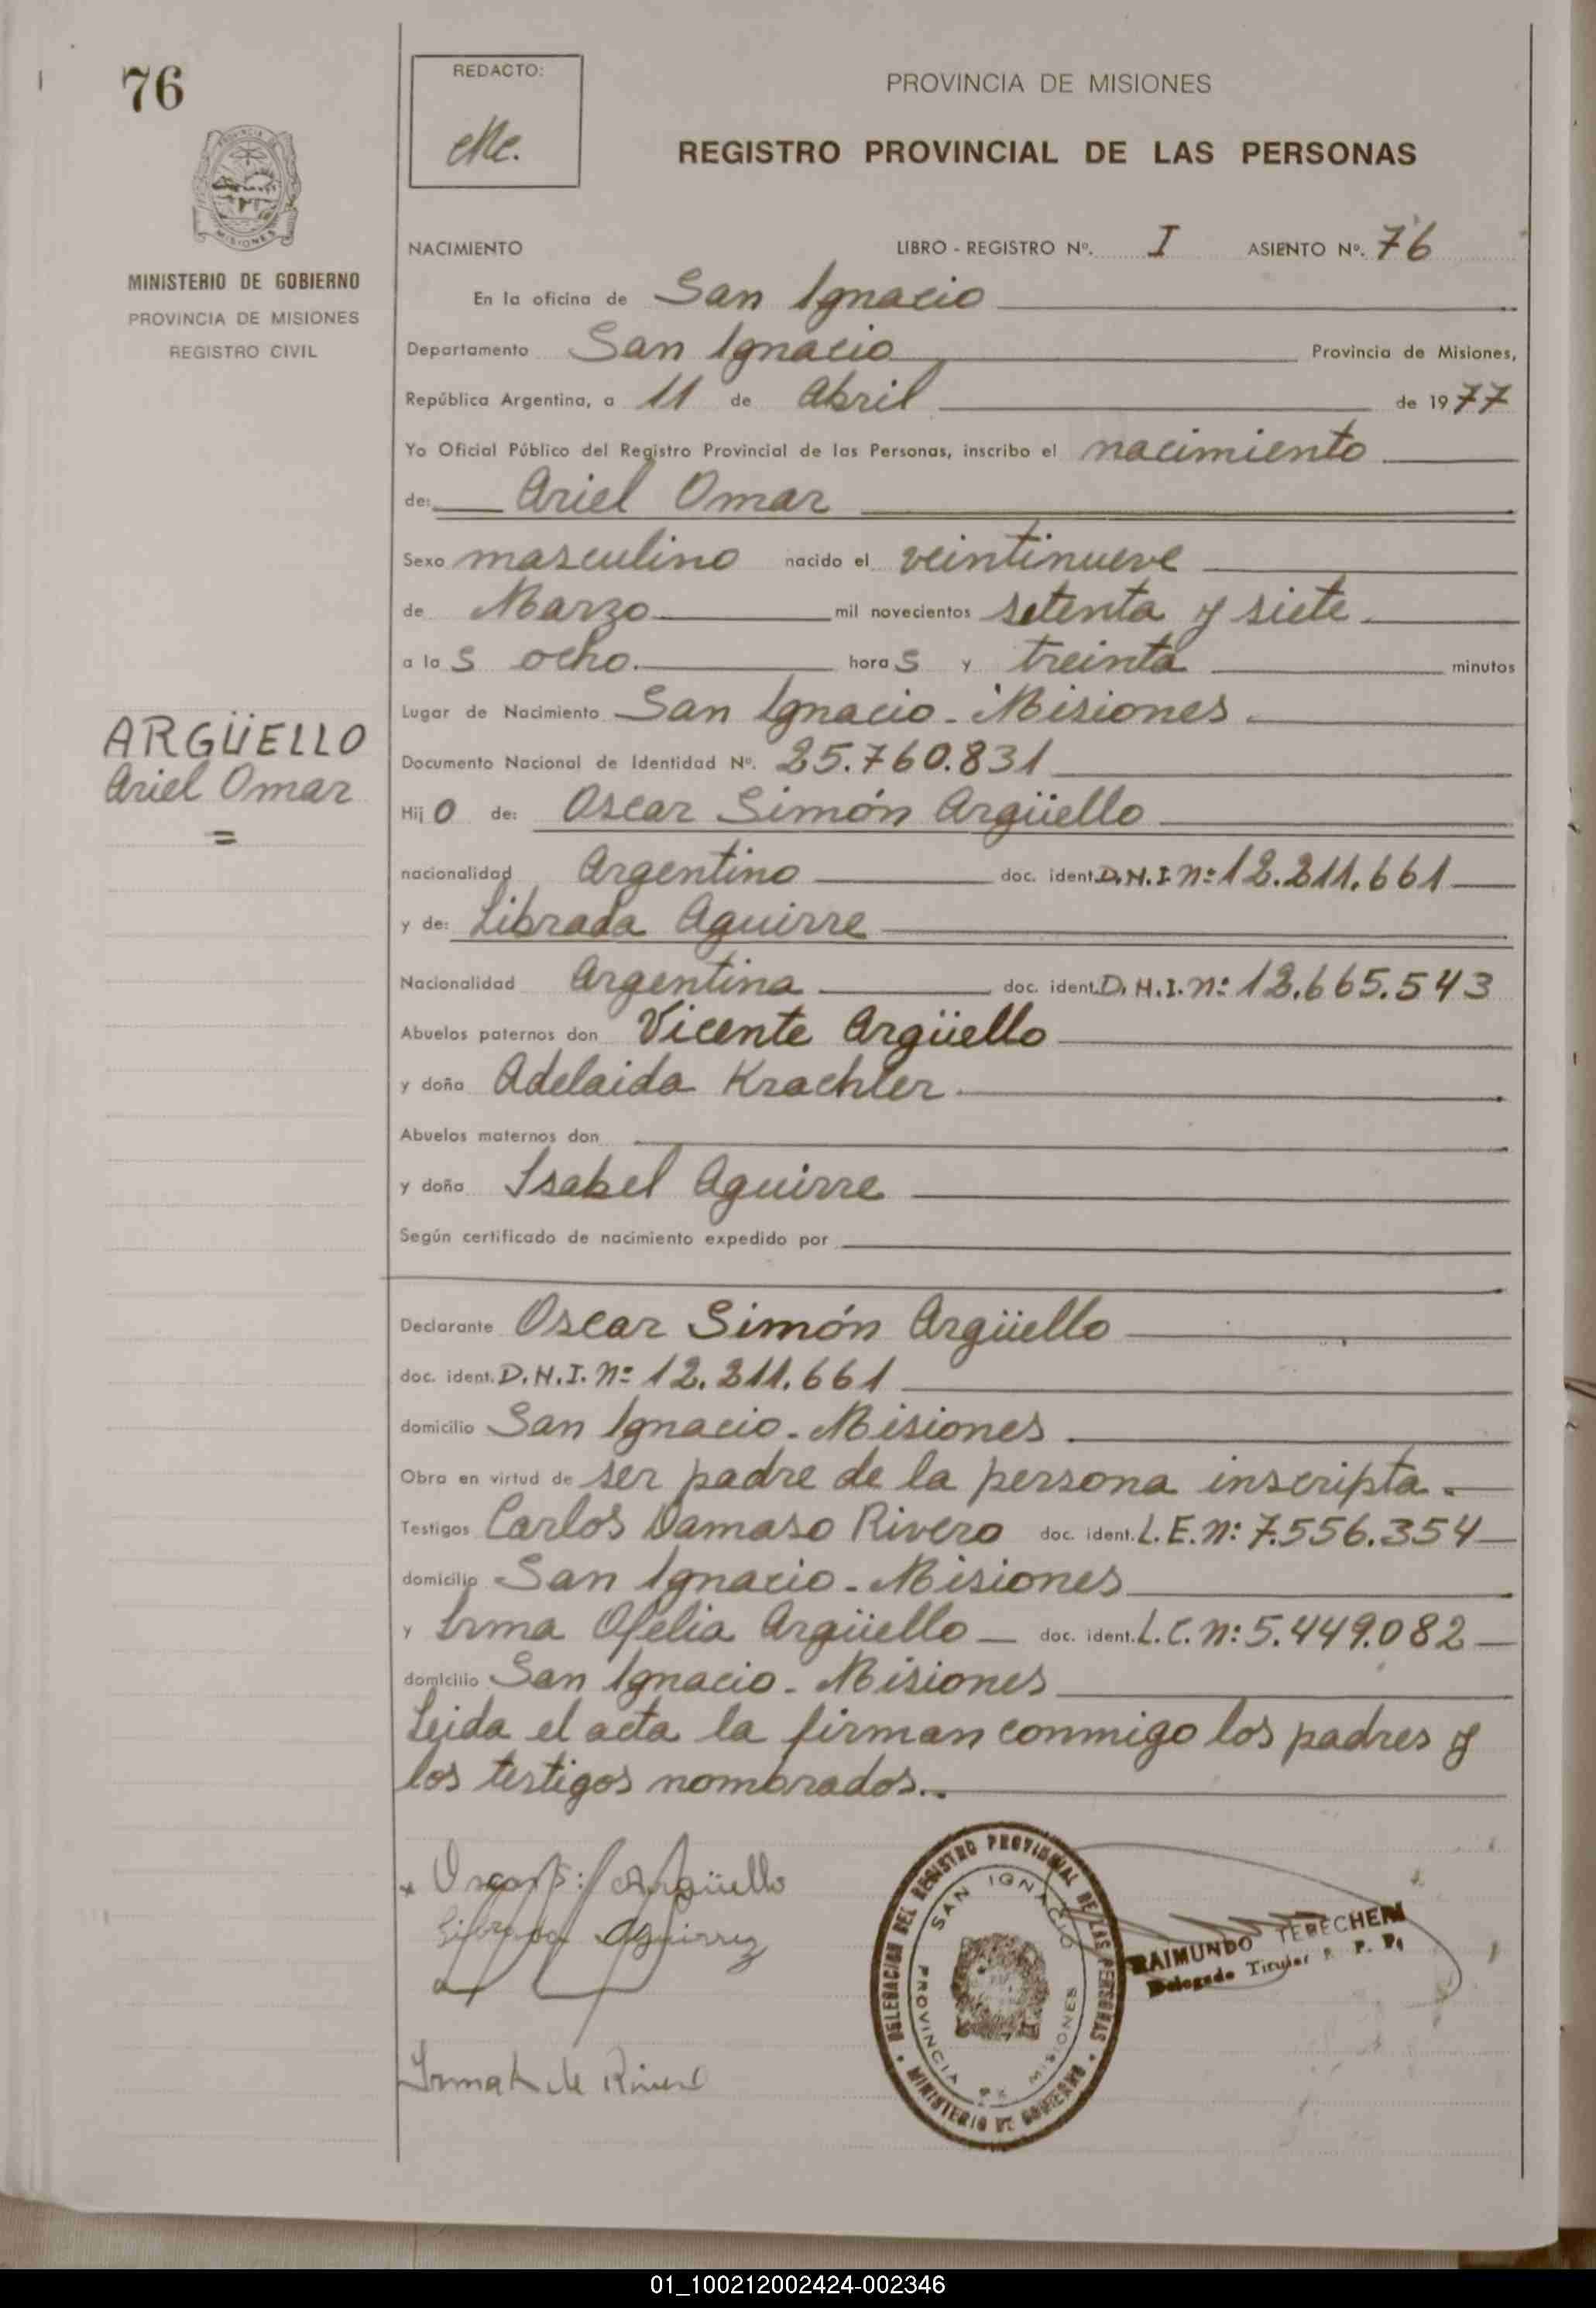 76
REDACTO:
PROVINCIA DE MISIONES
REGISTRO PROVINCIAL DE LAS PERSONAS
MISIONES
MINISTERIO DE GOBIERNO
PROVINCIA DE MISIONES
REGISTRO CIVIL
NACIMIENTO LIBRO - REGISTRO Nº. I ASIENTO Nº. 76
En la oficina de San Ignacio
Departamento San Ignacio Provincia de Misiones,
República Argentina, a 11 de Abril de 1977
Yo Oficial Público del Registro Provincial de las Personas, inscribo el nacimiento
de: Ariel Omar
Sexo masculino nacido el veintinueve
de Marzo mil novecientos setenta y siete.
a las ocho. horas y treinta minutos
Lugar de Nacimiento San Ignacio - Misiones.
ARGÜELLO
Ariel Omar
=
Documento Nacional de Identidad Nº. 25.760.831
Hijo de: Oscar Simón Argüello
nacionalidad Argentino doc. ident. D.N.I. nº 12.211.661
y de: Librada Aguirre
Nacionalidad Argentina doc. ident. D.N.I. nº 12.665.543
Abuelos paternos don Vicente Argüello
y doña Adelaida Krachler.
Abuelos maternos don
y doña Isabel Aguirre
Según certificado de nacimiento expedido por
Declarante Oscar Simón Argüello
doc. ident. D.N.I. nº 12.211.661
domicilio San Ignacio - Misiones
Obra en virtud de ser padre de la persona inscripta.
Testigos Carlos Damaso Rivero doc. ident. L.E. nº 7.556.354
domicilio San Ignacio - Misiones
y Irma Ofelia Argüello doc. ident. L.C. nº 5.449.082
domicilio San Ignacio - Misiones
Leida el acta la firman conmigo los padres y
los testigos nombrados.
Oscar S. Argüello
Librada Aguirrez
Irma A de Rivero
DELEGACION DEL REGISTRO PROVINCIAL DE LAS PERSONAS
MINISTERIO DE GOBIERNO
SAN IGNACIO
PROVINCIA DE MISIONES
RAIMUNDO TERECHEN
Delegado Titular R. P. P.
01_100212002424-002346